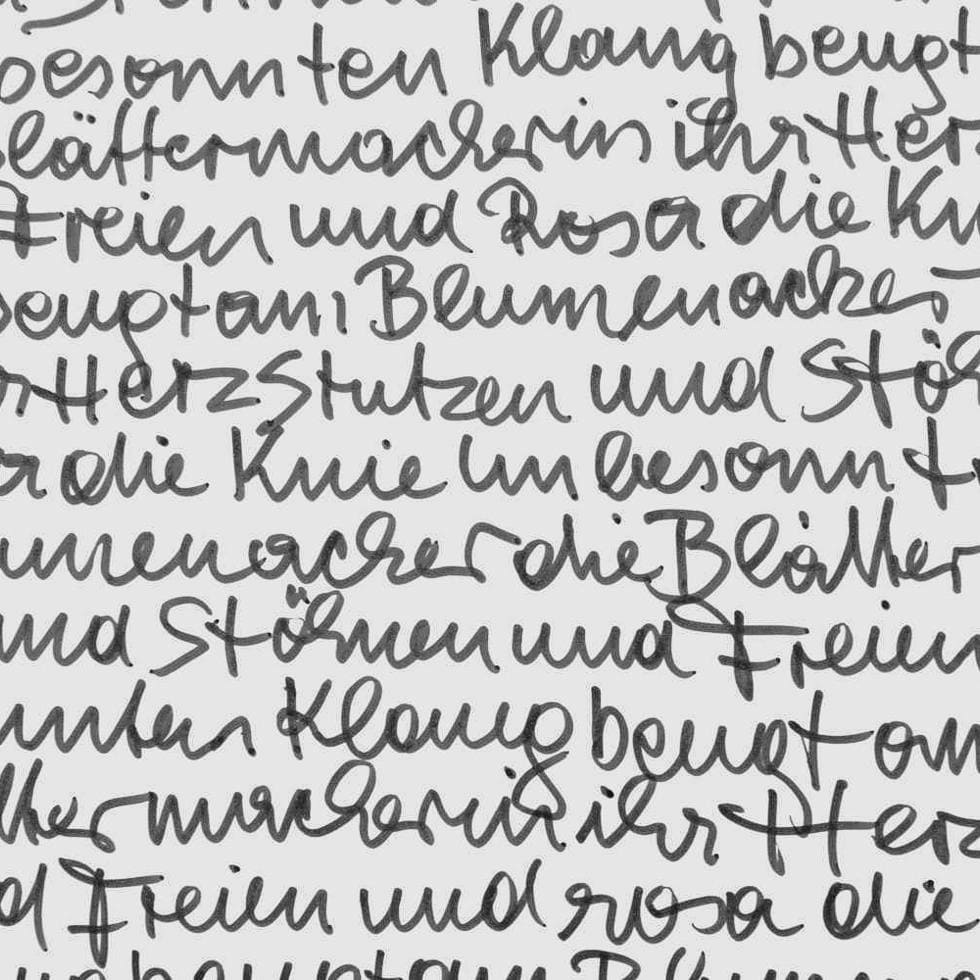 besonnten Klang beugt
lättermacherin ihr Herz
Freien und Rosa die Kn
beugt am Blumenacker
r Herz Stutzen und Stöh
er die Knie Im besonnt
umenacker die Blätter
und Stöhnen und Freien
nnten Klang beugt am
ttermacherin ihr Herz
d Freien und rosa die